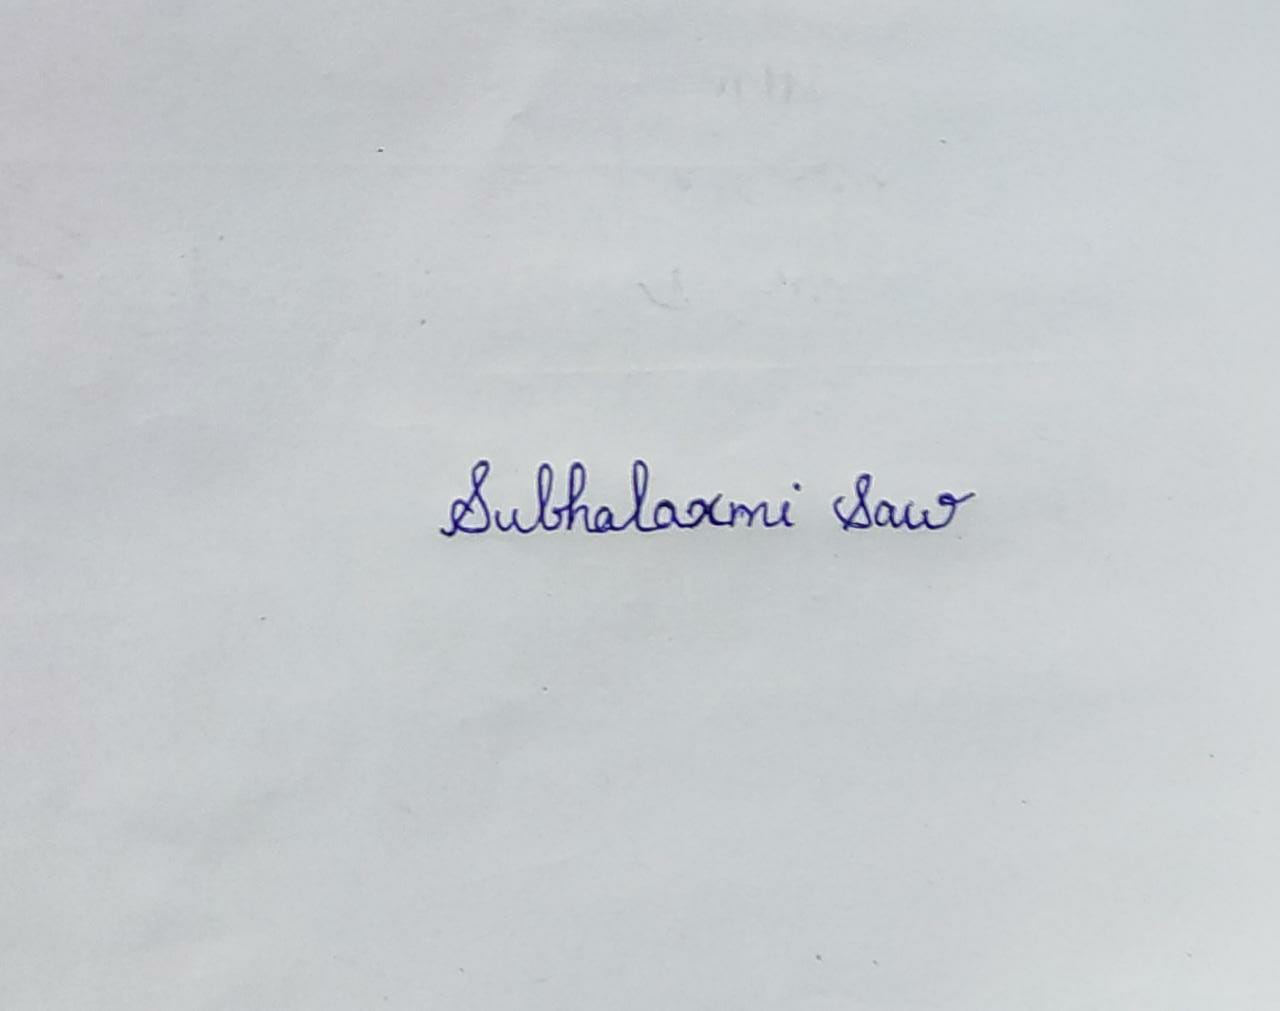 Subhalaxmi Saw